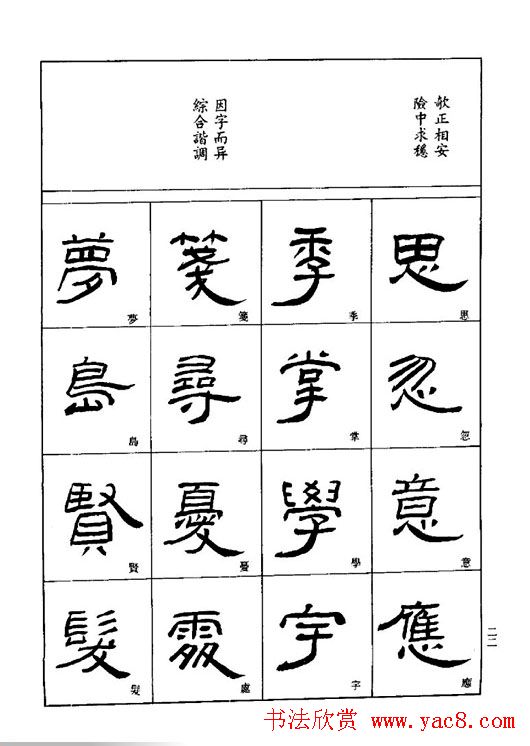 欹正相安
險中求穩
因字而异
綜合諧調
思
思
忽
忽
意
意
應
應
季
季
掌
掌
學
學
字
字
箋
箋
尋
尋
憂
憂
處
處
夢
夢
島
島
賢
賢
髮
髮
二二
书法欣赏 www.yac8.com